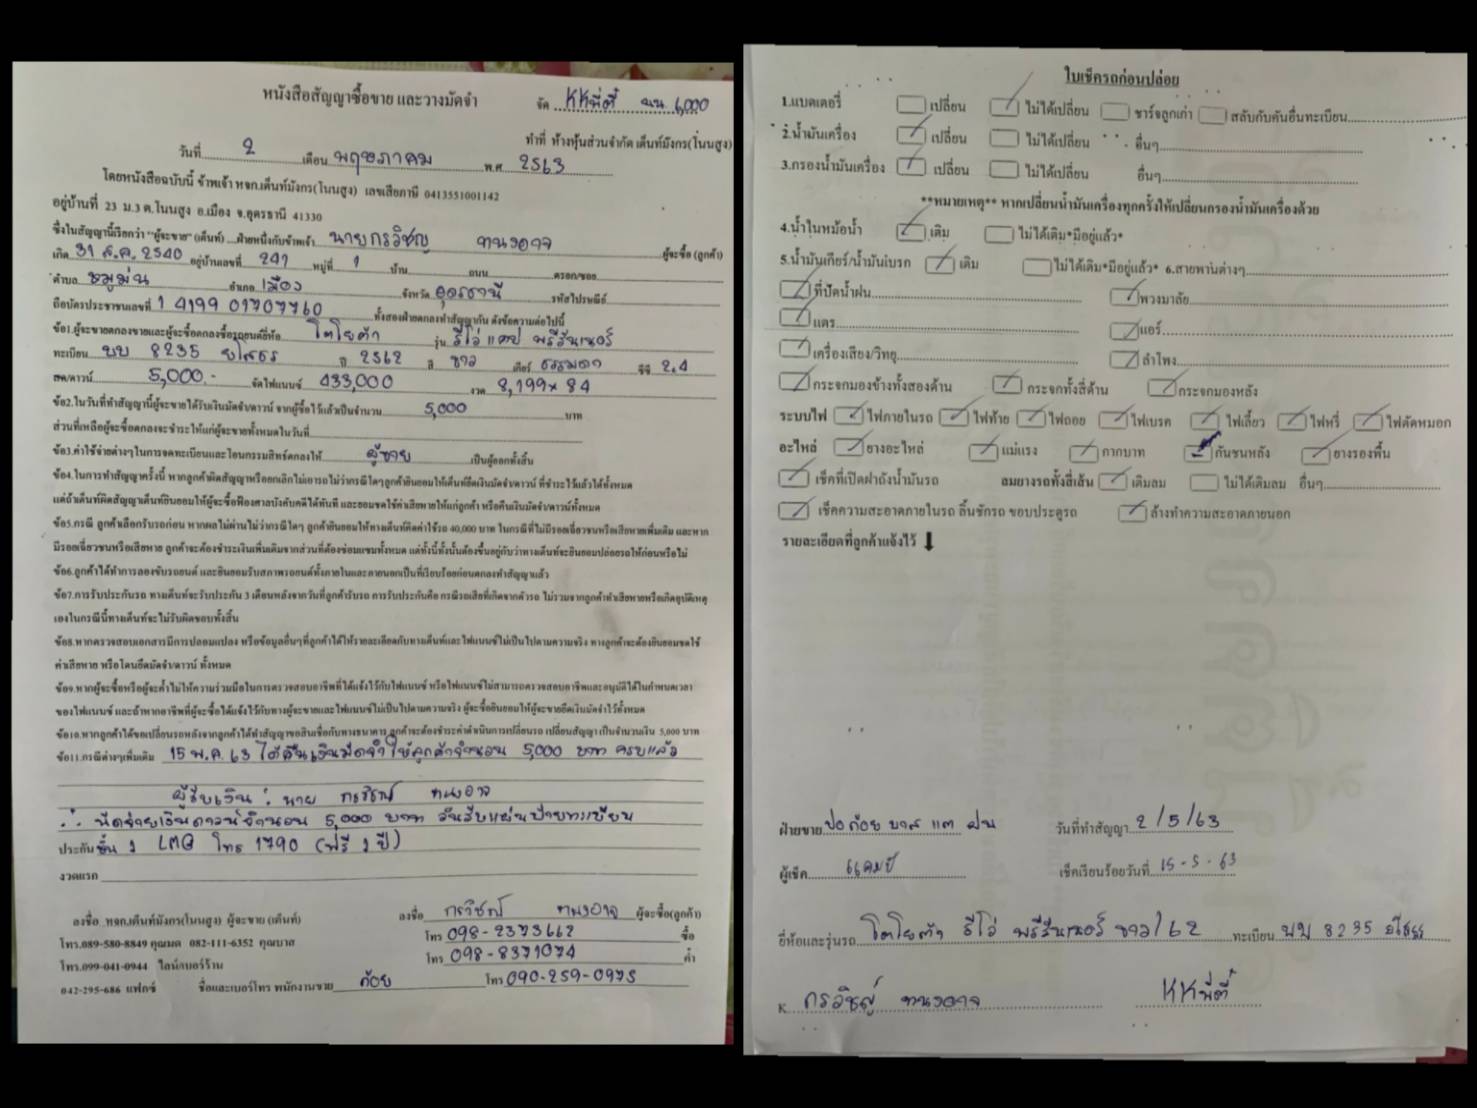 หนังสือสัญญาซื้อขาย และวางมัดจำ
จัด KKพี่ตี๋ นน. 6,000
ทำที่ ห้างหุ้นส่วนจำกัด เต็นท์มังกร(โนนสูง)
วันที่ 2 เดือน พฤษภาคม พ.ศ 2563
โดยหนังสือฉบับนี้ ข้าพเจ้า หจก.เต็นท์มังกร(โนนสูง) เลขเสียภาษี 0413551001142
อยู่บ้านที่ 23 ม.3 ต.โนนสูง อ.เมือง จ.อุดรธานี 41330
ซึ่งในสัญญานี้เรียกว่า "ผู้จะขาย" (เต็นท์) ฝ่ายหนึ่งกับข้าพเจ้า นายกรวิชญ ทนงอาจ ผู้จะซื้อ (ลูกค้า)
เกิด 31 ส.ค. 2540 อยู่บ้านเลขที่ 247 หมู่ที่ 1 บ้าน ถนน ตรอก/ซอย
ตำบล อำเภอ เมือง จังหวัด อุดรธานี รหัสไปรษณีย์
ถือบัตรประชาชนเลขที่ 1 4199 01707760 ทั้งสองฝ่ายตกลงทำสัญญากัน ดังข้อความต่อไปนี้
ข้อ1.ผู้จะขายตกลงขายและผู้จะซื้อตกลงซื้อรถยนต์ยี่ห้อ โตโยต้า รุ่น รีโว่ แคป พรีรันเนอร์
ทะเบียน บบ 8235 ยโสธร ปี 2562 สี ขาว เกียร์ ธรรมดา ซีซี 2.4
สด/ดาวน์ 5,000.- จัดไฟแนนซ์ 433,000 งวด 8,199 x 84
ข้อ2.ในวันที่ทำสัญญานี้ผู้จะขายได้รับเงินมัดจำ/ดาวน์ จากผู้ซื้อไว้แล้วเป็นจำนวน 5,000 บาท
ส่วนที่เหลือผู้จะซื้อตกลงจะชำระให้แก่ผู้จะขายทั้งหมดในวันที่
ข้อ3.ค่าใช้จ่ายต่างๆในการจดทะเบียนและโอนกรรมสิทธิ์ตกลงให้ ผู้ขาย เป็นผู้ออกทั้งสิ้น
ข้อ4.ในการทำสัญญาครั้งนี้ หากลูกค้าผิดสัญญาหรือยกเลิกไม่เอารถไม่ว่ากรณีใดๆลูกค้ายินยอมให้เต็นท์ยึดเงินมัดจำ/ดาวน์ ที่ชำระไว้แล้วได้ทั้งหมด
แต่ถ้าเต็นท์ผิดสัญญาเต็นท์ยินยอมให้ผู้จะซื้อฟ้องศาลบังคับคดีได้ทันที และยอมชดใช้ค่าเสียหายให้แก่ลูกค้า หรือคืนเงินมัดจำ/ดาวน์ทั้งหมด
ข้อ5.กรณี ลูกค้าเลือกรับรถก่อน หากผลไม่ผ่านไม่ว่ากรณีใดๆ ลูกค้ายินยอมให้ทางเต็นท์คิดค่าใช้รถ 40,000 บาท ในกรณีที่ไม่มีรอยเฉี่ยวชนหรือเสียหายเพิ่มเติม และหาก
มีรอยเฉี่ยวชนหรือเสียหาย ลูกค้าจะต้องชำระเงินเพิ่มเติมจากส่วนที่ต้องซ่อมแซมทั้งหมด แต่ทั้งนี้ทั้งนั้นต้องขึ้นอยู่กับว่าทางเต็นท์จะยินยอมปล่อยรถให้ก่อนหรือไม่
ข้อ6.ลูกค้าได้ทำการลองขับรถยนต์ และยินยอมรับสภาพรถยนต์ทั้งภายในและภายนอกเป็นที่เรียบร้อยก่อนตกลงทำสัญญาแล้ว
ข้อ7.การรับประกันรถ ทางเต็นท์จะรับประกัน 3 เดือนหลังจากวันที่ลูกค้ารับรถ การรับประกันคือ กรณีรถเสียที่เกิดจากตัวรถ ไม่รวมจากลูกค้าทำเสียหายหรือเกิดอุบัติเหตุ
เองในกรณีนี้ทางเต็นท์จะไม่รับผิดชอบทั้งสิ้น
ข้อ8.หากตรวจสอบเอกสารมีการปลอมแปลง หรือข้อมูลอื่นๆที่ลูกค้าได้ให้รายละเอียดกับทางเต็นท์และไฟแนนซ์ไม่เป็นไปตามความจริง ทางลูกค้าจะต้องยินยอมชดใช้
ค่าเสียหาย หรือโดนยึดมัดจำ/ดาวน์ ทั้งหมด
ข้อ9.หากผู้จะซื้อหรือผู้จะค้ำไม่ให้ความร่วมมือในการตรวจสอบอาชีพที่ได้แจ้งไว้กับไฟแนนซ์ หรือไฟแนนซ์ไม่สามารถตรวจสอบอาชีพและอนุมัติได้ในกำหนดเวลา
ของไฟแนนซ์ และถ้าหากอาชีพที่ผู้จะซื้อได้แจ้งไว้กับทางผู้จะขายและไฟแนนซ์ไม่เป็นไปตามความจริง ผู้จะซื้อยินยอมให้ผู้จะขายยึดเงินมัดจำไว้ทั้งหมด
ข้อ10.หากลูกค้าได้ขอเปลี่ยนรถหลังจากลูกค้าได้ทำสัญญาขอสินเชื่อกับทางธนาคาร ลูกค้าจะต้องชำระค่าดำเนินการเปลี่ยนรถ เปลี่ยนสัญญา เป็นจำนวนเงิน 5,000 บาท
ข้อ11.กรณีต่างๆเพิ่มเติม 15 พ.ค. 63 ได้คืนเงินมัดจำให้ลูกค้าจำนวน 5,000 บาท ครบแล้ว
ผู้รับเงิน : นาย กรวิชญ์ ทนงอาจ
∴ นัดจ่ายเงินดาวน์จำนวน 5,000 บาท วันรับแผ่นป้ายทะเบียน
ประกัน ชั้น 1 LMG โทร 1790 (ฟรี 1 ปี)
งวดแรก
ลงชื่อ หจก.เต็นท์มังกร(โนนสูง) ผู้จะขาย (เต็นท์) ลงชื่อ กรวิชญ์ ทนงอาจ ผู้จะซื้อ(ลูกค้า)
โทร.089-580-8849 คุณมด 082-111-6352 คุณบาส โทร 098-2373662 ซื้อ
โทร.099-041-0944 ไลน์/เบอร์ร้าน โทร 098-8371074 ค้ำ
042-295-686 แฟกซ์ ชื่อและเบอร์โทร พนักงานขาย ก้อย โทร 090-259-0975
ใบเช็ครถก่อนปล่อย
1.แบตเตอรี่ เปลี่ยน ไม่ได้เปลี่ยน ชาร์จลูกเก่า สลับกับคันอื่นทะเบียน
2.น้ำมันเครื่อง เปลี่ยน ไม่ได้เปลี่ยน อื่นๆ
3.กรองน้ำมันเครื่อง เปลี่ยน ไม่ได้เปลี่ยน อื่นๆ
**หมายเหตุ** หากเปลี่ยนน้ำมันเครื่องทุกครั้งให้เปลี่ยนกรองน้ำมันเครื่องด้วย
4.น้ำในหม้อน้ำ เติม ไม่ได้เติม*มีอยู่แล้ว*
5.น้ำมันเกียร์/น้ำมันเบรก เติม ไม่ได้เติม*มีอยู่แล้ว* 6.สายพานต่างๆ
ที่ปัดน้ำฝน พวงมาลัย
แตร แอร์
เครื่องเสียง/วิทยุ ลำโพง
กระจกมองข้างทั้งสองด้าน กระจกทั้งสี่ด้าน กระจกมองหลัง
ระบบไฟ ไฟภายในรถ ไฟท้าย ไฟถอย ไฟเบรค ไฟเลี้ยว ไฟหรี่ ไฟตัดหมอก
อะไหล่ ยางอะไหล่ แม่แรง กากบาท กันชนหลัง ยางรองพื้น
เช็คที่เปิดฝาถังน้ำมันรถ ลมยางรถทั้งสี่เส้น เติมลม ไม่ได้เติมลม อื่นๆ
เช็คความสะอาดภายในรถ ลิ้นชักรถ ขอบประตูรถ ล้างทำความสะอาดภายนอก
รายละเอียดที่ลูกค้าแจ้งไว้ ⬇
ฝ่ายขาย ปอ ก้อย บาส แต ฝน วันที่ทำสัญญา 2/5/63
ผู้เช็ค เช็คเรียบร้อยวันที่ 15-5-63
ยี่ห้อและรุ่นรถ โตโยต้า รีโว่ พรีรันเนอร์ ขาว/62 ทะเบียน บบ 8235 ยโสธร
K กรวิชญ์ ทนงอาจ KKพี่ตี๋